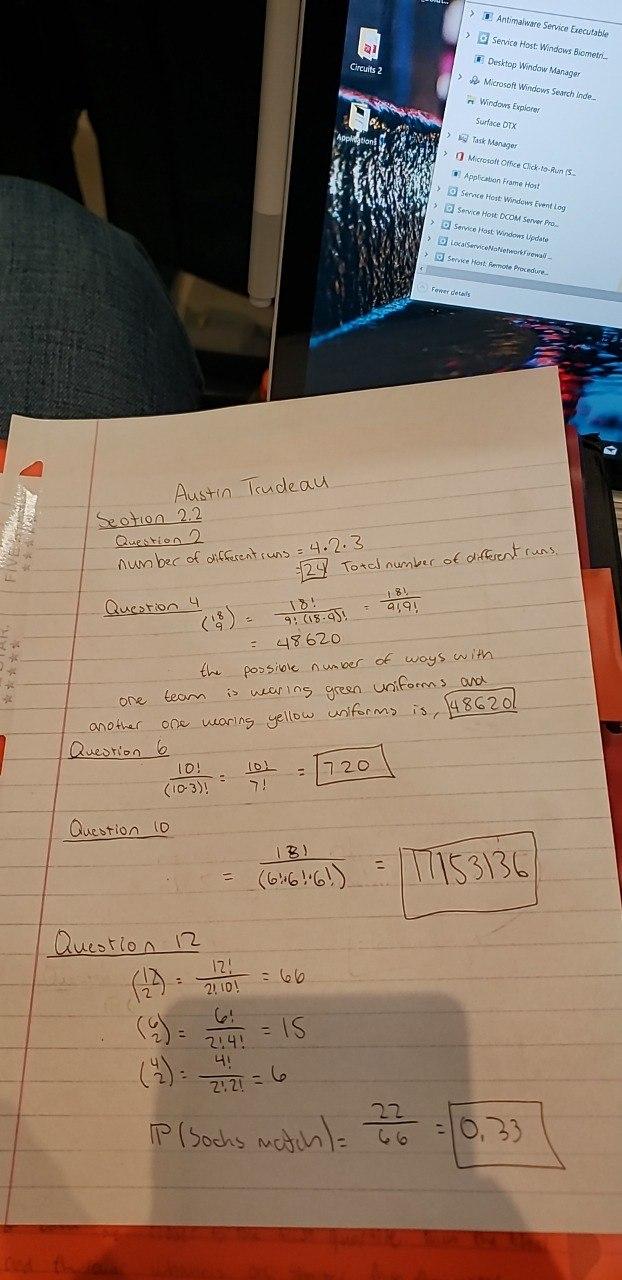 Circuits 2
Applications
Antimalware Service Executable
Service Host: Windows Biometri...
Desktop Window Manager
Microsoft Windows Search Inde...
Windows Explorer
Surface DTX
Task Manager
Microsoft Office Click-to-Run (S...
Application Frame Host
Service Host: Windows Event Log
Service Host: DCOM Server Pro...
Service Host: Windows Update
LocalServiceNoNetworkFirewall ...
Service Host: Remote Procedure...
Fewer details
Austin Trudeau
Section 2.2
Question 2
number of different runs = 4·2·3
= 24 Total number of different runs.
Question 4
(18 9) = 18!/9!(18-9)! = 18!/9!9!
= 48620
the possible number of ways with
one team is wearing green uniforms and
another one wearing yellow uniforms is, 48620
Question 6
10!/(10-3)! = 10!/7! = 720
Question 10
= 18!/(6!·6!·6!) = 17153136
Question 12
(12 2) = 12!/2!10! = 66
(6 2) = 6!/2!4! = 15
(4 2) = 4!/2!2! = 6
P(Socks match) = 22/66 = 0.33